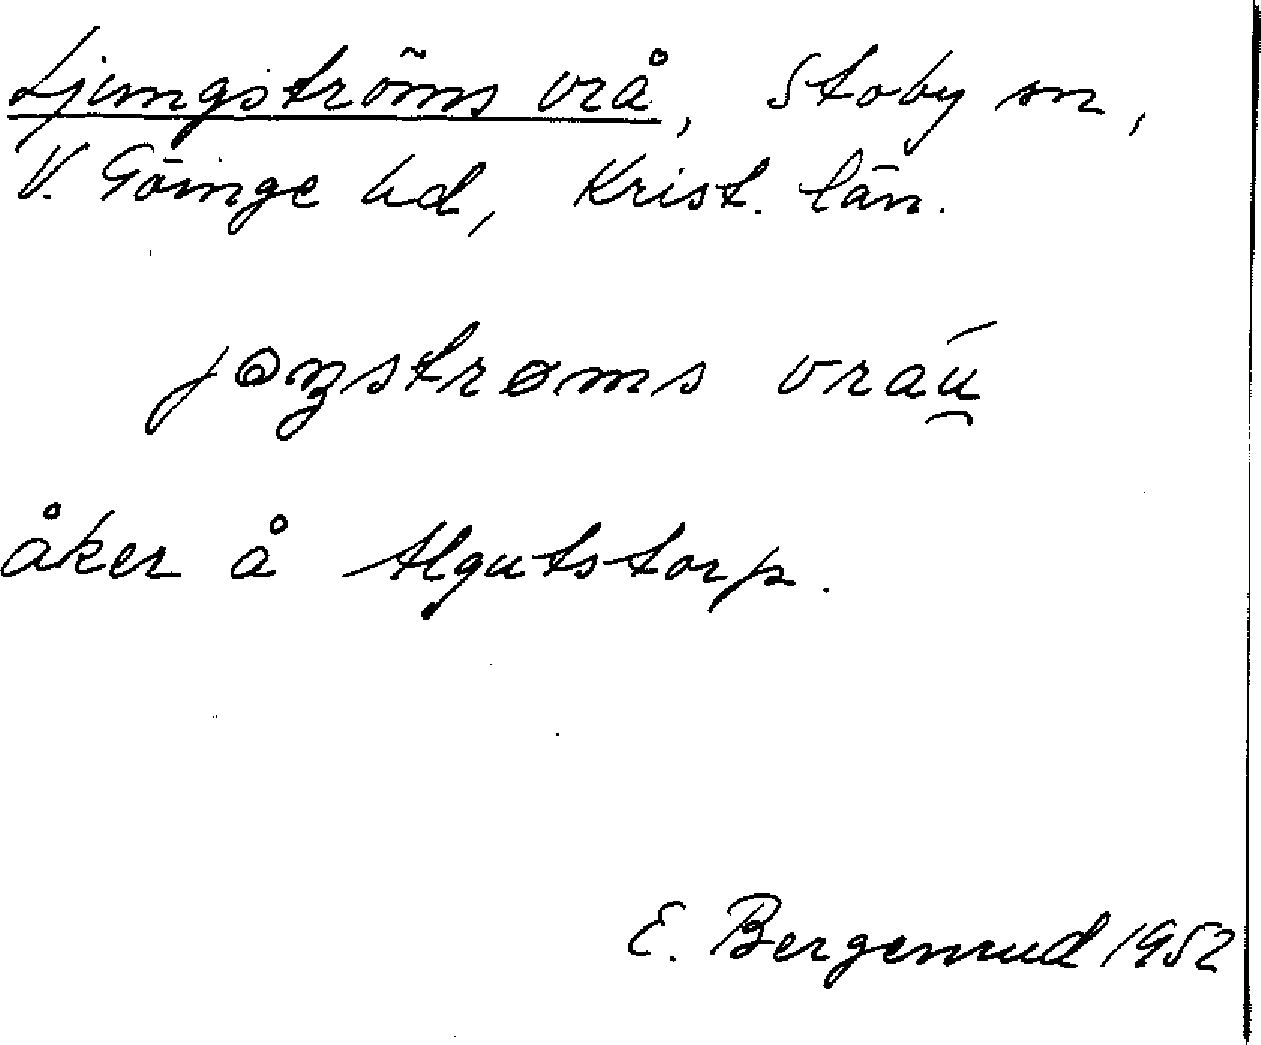 Ljungströms vrå, Stoby sn,
V. Göinge hd, Krist. län.
jɵŋstrøms vráu̯
åker å Algutstorp.
E. Bergenrud 1952